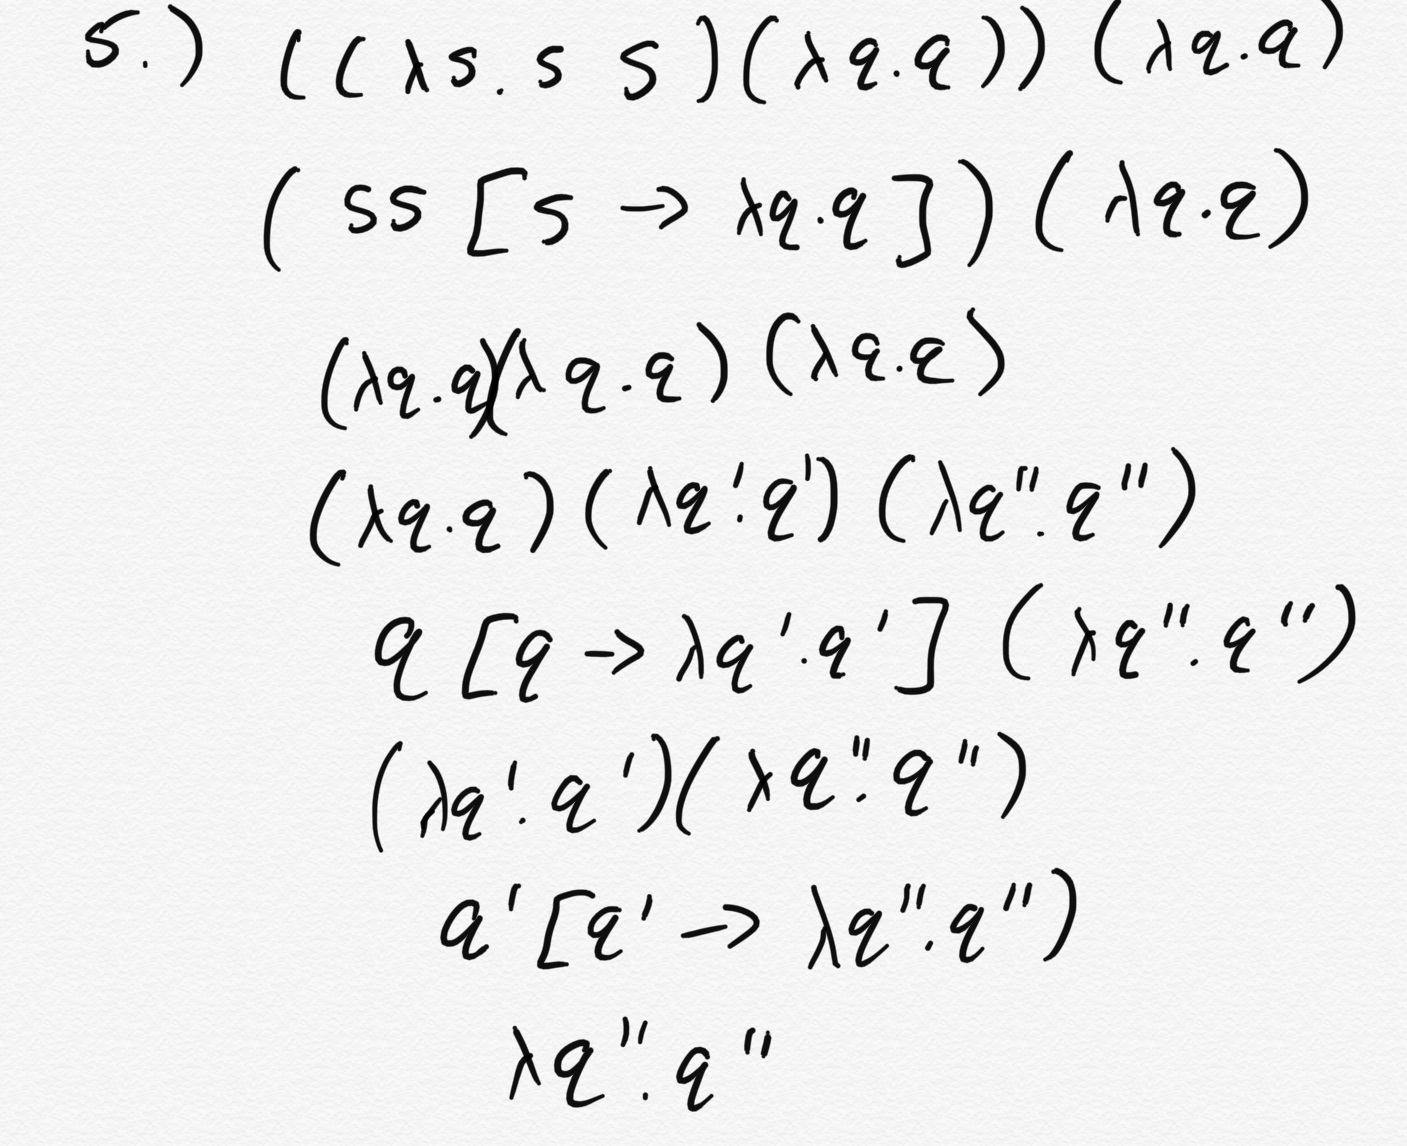 5.) ((λs. s s)(λq.q)) (λq.q)
(ss[s → λq.q])(λq.q)
(λq.q)(λq.q)(λq.q)
(λq.q)(λq'.q')(λq".q")
q[q → λq'.q'](λq".q")
(λq'.q')(λq".q")
q'[q' → λq".q")
λq".q"